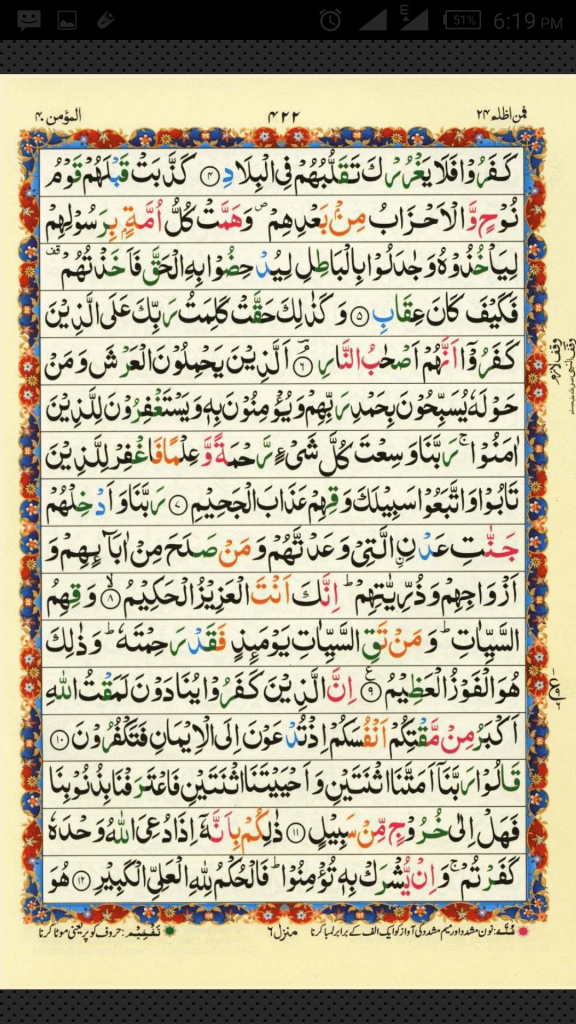 E
51%
6:19 PM
المؤمن ٤٠
٤٢٢
فمن اظلم ٢٤
كَفَرُوْا فَلَا يَغْرُرْكَ تَقَلُّبُهُمْ فِی الْبِلَادِ ﴿۴﴾ كَذَّبَتْ قَبْلَهُمْ قَوْمُ
نُوْحٍ وَّالْاَحْزَابُ مِنْۢ بَعْدِهِمْ ۪ وَهَمَّتْ كُلُّ اُمَّةٍۭ بِرَسُوْلِهِمْ
لِيَاْخُذُوْهُ وَجٰدَلُوْا بِالْبَاطِلِ لِيُدْحِضُوْا بِهِ الْحَقَّ فَاَخَذْتُهُمْ ۫
فَكَيْفَ كَانَ عِقَابِ ﴿۵﴾ وَكَذٰلِكَ حَقَّتْ كَلِمَتُ رَبِّكَ عَلَی الَّذِيْنَ
كَفَرُوْۤا اَنَّهُمْ اَصْحٰبُ النَّارِ ﴿۶﴾ۘ اَلَّذِيْنَ يَحْمِلُوْنَ الْعَرْشَ وَمَنْ
حَوْلَهٗ يُسَبِّحُوْنَ بِحَمْدِ رَبِّهِمْ وَيُؤْمِنُوْنَ بِهٖ وَيَسْتَغْفِرُوْنَ لِلَّذِيْنَ
اٰمَنُوْا ۚ رَبَّنَا وَسِعْتَ كُلَّ شَیْءٍ رَّحْمَةً وَّعِلْمًا فَاغْفِرْ لِلَّذِيْنَ
تَابُوْا وَاتَّبَعُوْا سَبِيْلَكَ وَقِهِمْ عَذَابَ الْجَحِيْمِ ﴿۷﴾ رَبَّنَا وَاَدْخِلْهُمْ
جَنّٰتِ عَدْنِ ۨالَّتِیْ وَعَدْتَّهُمْ وَمَنْ صَلَحَ مِنْ اٰبَآئِهِمْ وَ
اَزْوَاجِهِمْ وَذُرِّيّٰتِهِمْ ؕ اِنَّكَ اَنْتَ الْعَزِيْزُ الْحَكِيْمُ ﴿۸﴾ۙ وَقِهِمُ
السَّيِّاٰتِ ؕ وَمَنْ تَقِ السَّيِّاٰتِ يَوْمَئِذٍ فَقَدْ رَحِمْتَهٗ ؕ وَذٰلِكَ
هُوَ الْفَوْزُ الْعَظِيْمُ ﴿۹﴾ع اِنَّ الَّذِيْنَ كَفَرُوْا يُنَادَوْنَ لَمَقْتُ اللّٰهِ
اَكْبَرُ مِنْ مَّقْتِكُمْ اَنْفُسَكُمْ اِذْ تُدْعَوْنَ اِلَی الْاِيْمَانِ فَتَكْفُرُوْنَ ﴿۱۰﴾
قَالُوْا رَبَّنَاۤ اَمَتَّنَا اثْنَتَيْنِ وَاَحْيَيْتَنَا اثْنَتَيْنِ فَاعْتَرَفْنَا بِذُنُوْبِنَا
فَهَلْ اِلٰی خُرُوْجٍ مِّنْ سَبِيْلٍ ﴿۱۱﴾ ذٰلِكُمْ بِاَنَّهٗۤ اِذَا دُعِیَ اللّٰهُ وَحْدَهٗ
كَفَرْتُمْ ۚ وَاِنْ يُّشْرَكْ بِهٖ تُؤْمِنُوْا ؕ فَالْحُكْمُ لِلّٰهِ الْعَلِیِّ الْكَبِيْرِ ﴿۱۲﴾ هُوَ
وقف لازم
غُنَّه: نون مشدد اور میم مشدد کی آواز کو ایک الف کے برابر لمبا کرنا
منزل ٦
تَفْخِيْم: حروف کو پُر یعنی موٹا کرنا